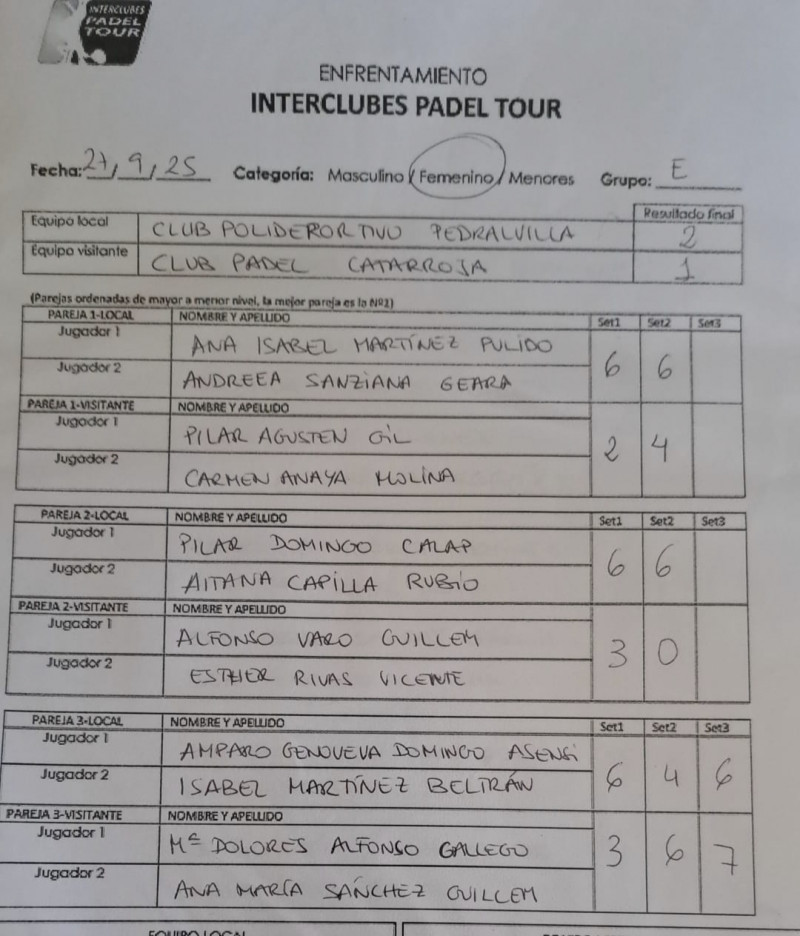 INTERCLUBES
PADEL
TOUR
ENFRENTAMIENTO
INTERCLUBES PADEL TOUR
Fecha: 27/9/25 Categoría: Masculino / Femenino / Menores Grupo: E
Resultado final
Equipo local CLUB POLIDEPORTIVO PEDRALVILLA 2
Equipo visitante CLUB PADEL CATARROJA 1
(Parejas ordenadas de mayor a menor nivel, la mejor pareja es la Nº1)
PAREJA 1-LOCAL NOMBRE Y APELLIDO Set1 Set2 Set3
Jugador 1 ANA ISABEL MARTÍNEZ PULIDO
Jugador 2 ANDREEA SANZIANA GEARA 6 6
PAREJA 1-VISITANTE NOMBRE Y APELLIDO
Jugador 1 PILAR AGUSTEN GIL
Jugador 2 CARMEN ANAYA MOLINA 2 4
PAREJA 2-LOCAL NOMBRE Y APELLIDO Set1 Set2 Set3
Jugador 1 PILAR DOMINGO CALAP
Jugador 2 AITANA CAPILLA RUBIO 6 6
PAREJA 2-VISITANTE NOMBRE Y APELLIDO
Jugador 1 ALFONSO VARO GUILLEM
Jugador 2 ESTHER RIVAS VICENTE 3 0
PAREJA 3-LOCAL NOMBRE Y APELLIDO Set1 Set2 Set3
Jugador 1 AMPARO GENOVEVA DOMINGO ASENSI
Jugador 2 ISABEL MARTÍNEZ BELTRÁN 6 4 6
PAREJA 3-VISITANTE NOMBRE Y APELLIDO
Jugador 1 Mª DOLORES ALFONSO GALLEGO
Jugador 2 ANA MARÍA SÁNCHEZ GUILLEM 3 6 7
EQUIPO LOCAL